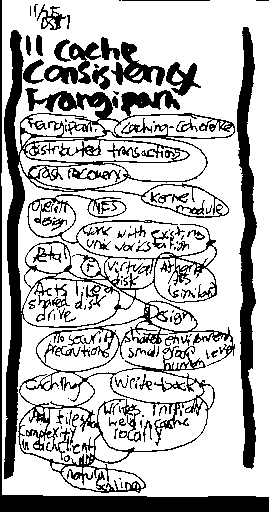 11 Cache
Consistency
Frangipani
Frangipani Caching-coherence
distributed transactions
Crash recovery
Overall design NFS Kernel module
Work with existing unix workstation
Petal F Virtual disk
Acts like a shared disk drive
Design
no security precautions
shared environment small group human level
Caching Write-back
complexity in each client
Writes initially held in cache locally
natural scaling